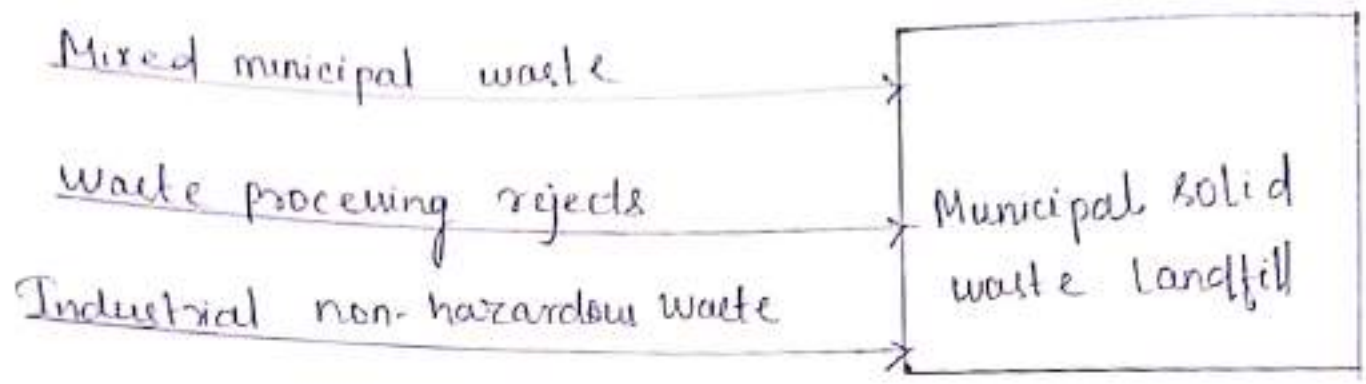 Mixed municipal waste
Waste processing rejects
Industrial non-hazardous waste
Municipal solid
waste landfill